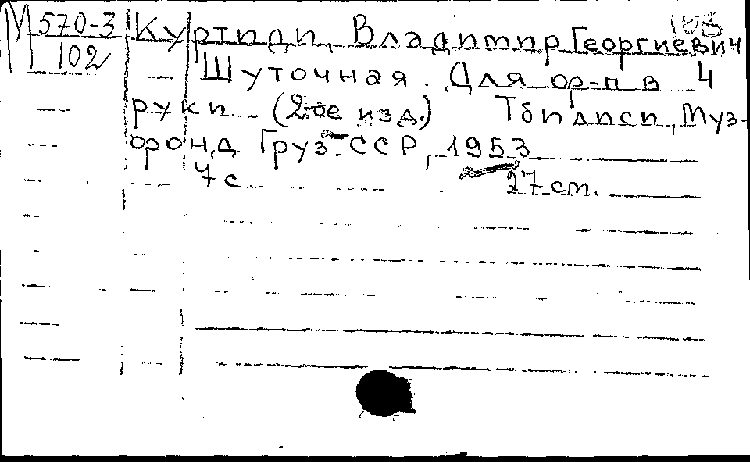 М 570-3 Куртиди, Владимир Георгиевич
102 Шуточная. Для ф-п в 4
руки. (2-ое изд.) Тбилиси, Муз-
фонд Груз. ССР, 1953
7 с 27 см.